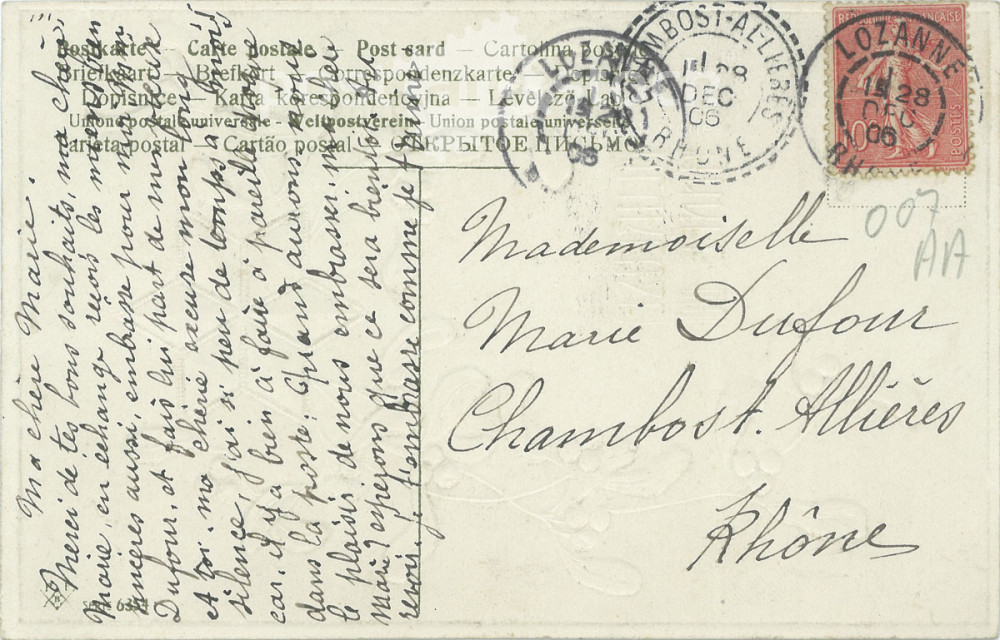 Postkarte — Carte postale — Post card — Cartolina postale
Briefkaart — Brefkort — Correspondenzkarte —
Dopisnice — Karta korespondencyjna — Levelező-Lap
Unione postale universale — Weltpostverein — Union postale universelle
Tarjeta postal — Cartão postal — ОТКРЫТОЕ ПИСЬМО
CHAMBOST-ALLIÈRES
28
DEC
06
RHONE
LOZANNE
06
RÉPUBLIQUE FRANÇAISE
POSTES
10
LOZANNE
28
DEC
06
RHONE
007
AA
Mademoiselle
Marie Dufour
Chambost. Allières
Rhône
Ma chère Marie.
Merci de tes bons souhaits, ma chère
Marie, en échange reçois les miens bien
sincères aussi, embrasse pour moi
Dufour, et fais lui part de mon
A toi, ma chérie excuse mon long
silence, j'ai si peu de temps à moi
car, il y a bien à faire à pareille époque
dans la poste; Quand aurons nous
le plaisir de nous embrasser, ma chère
Marie, espérons que ce sera bientôt, au
revoir, j'embrasse comme je t'aime
Serie 6351